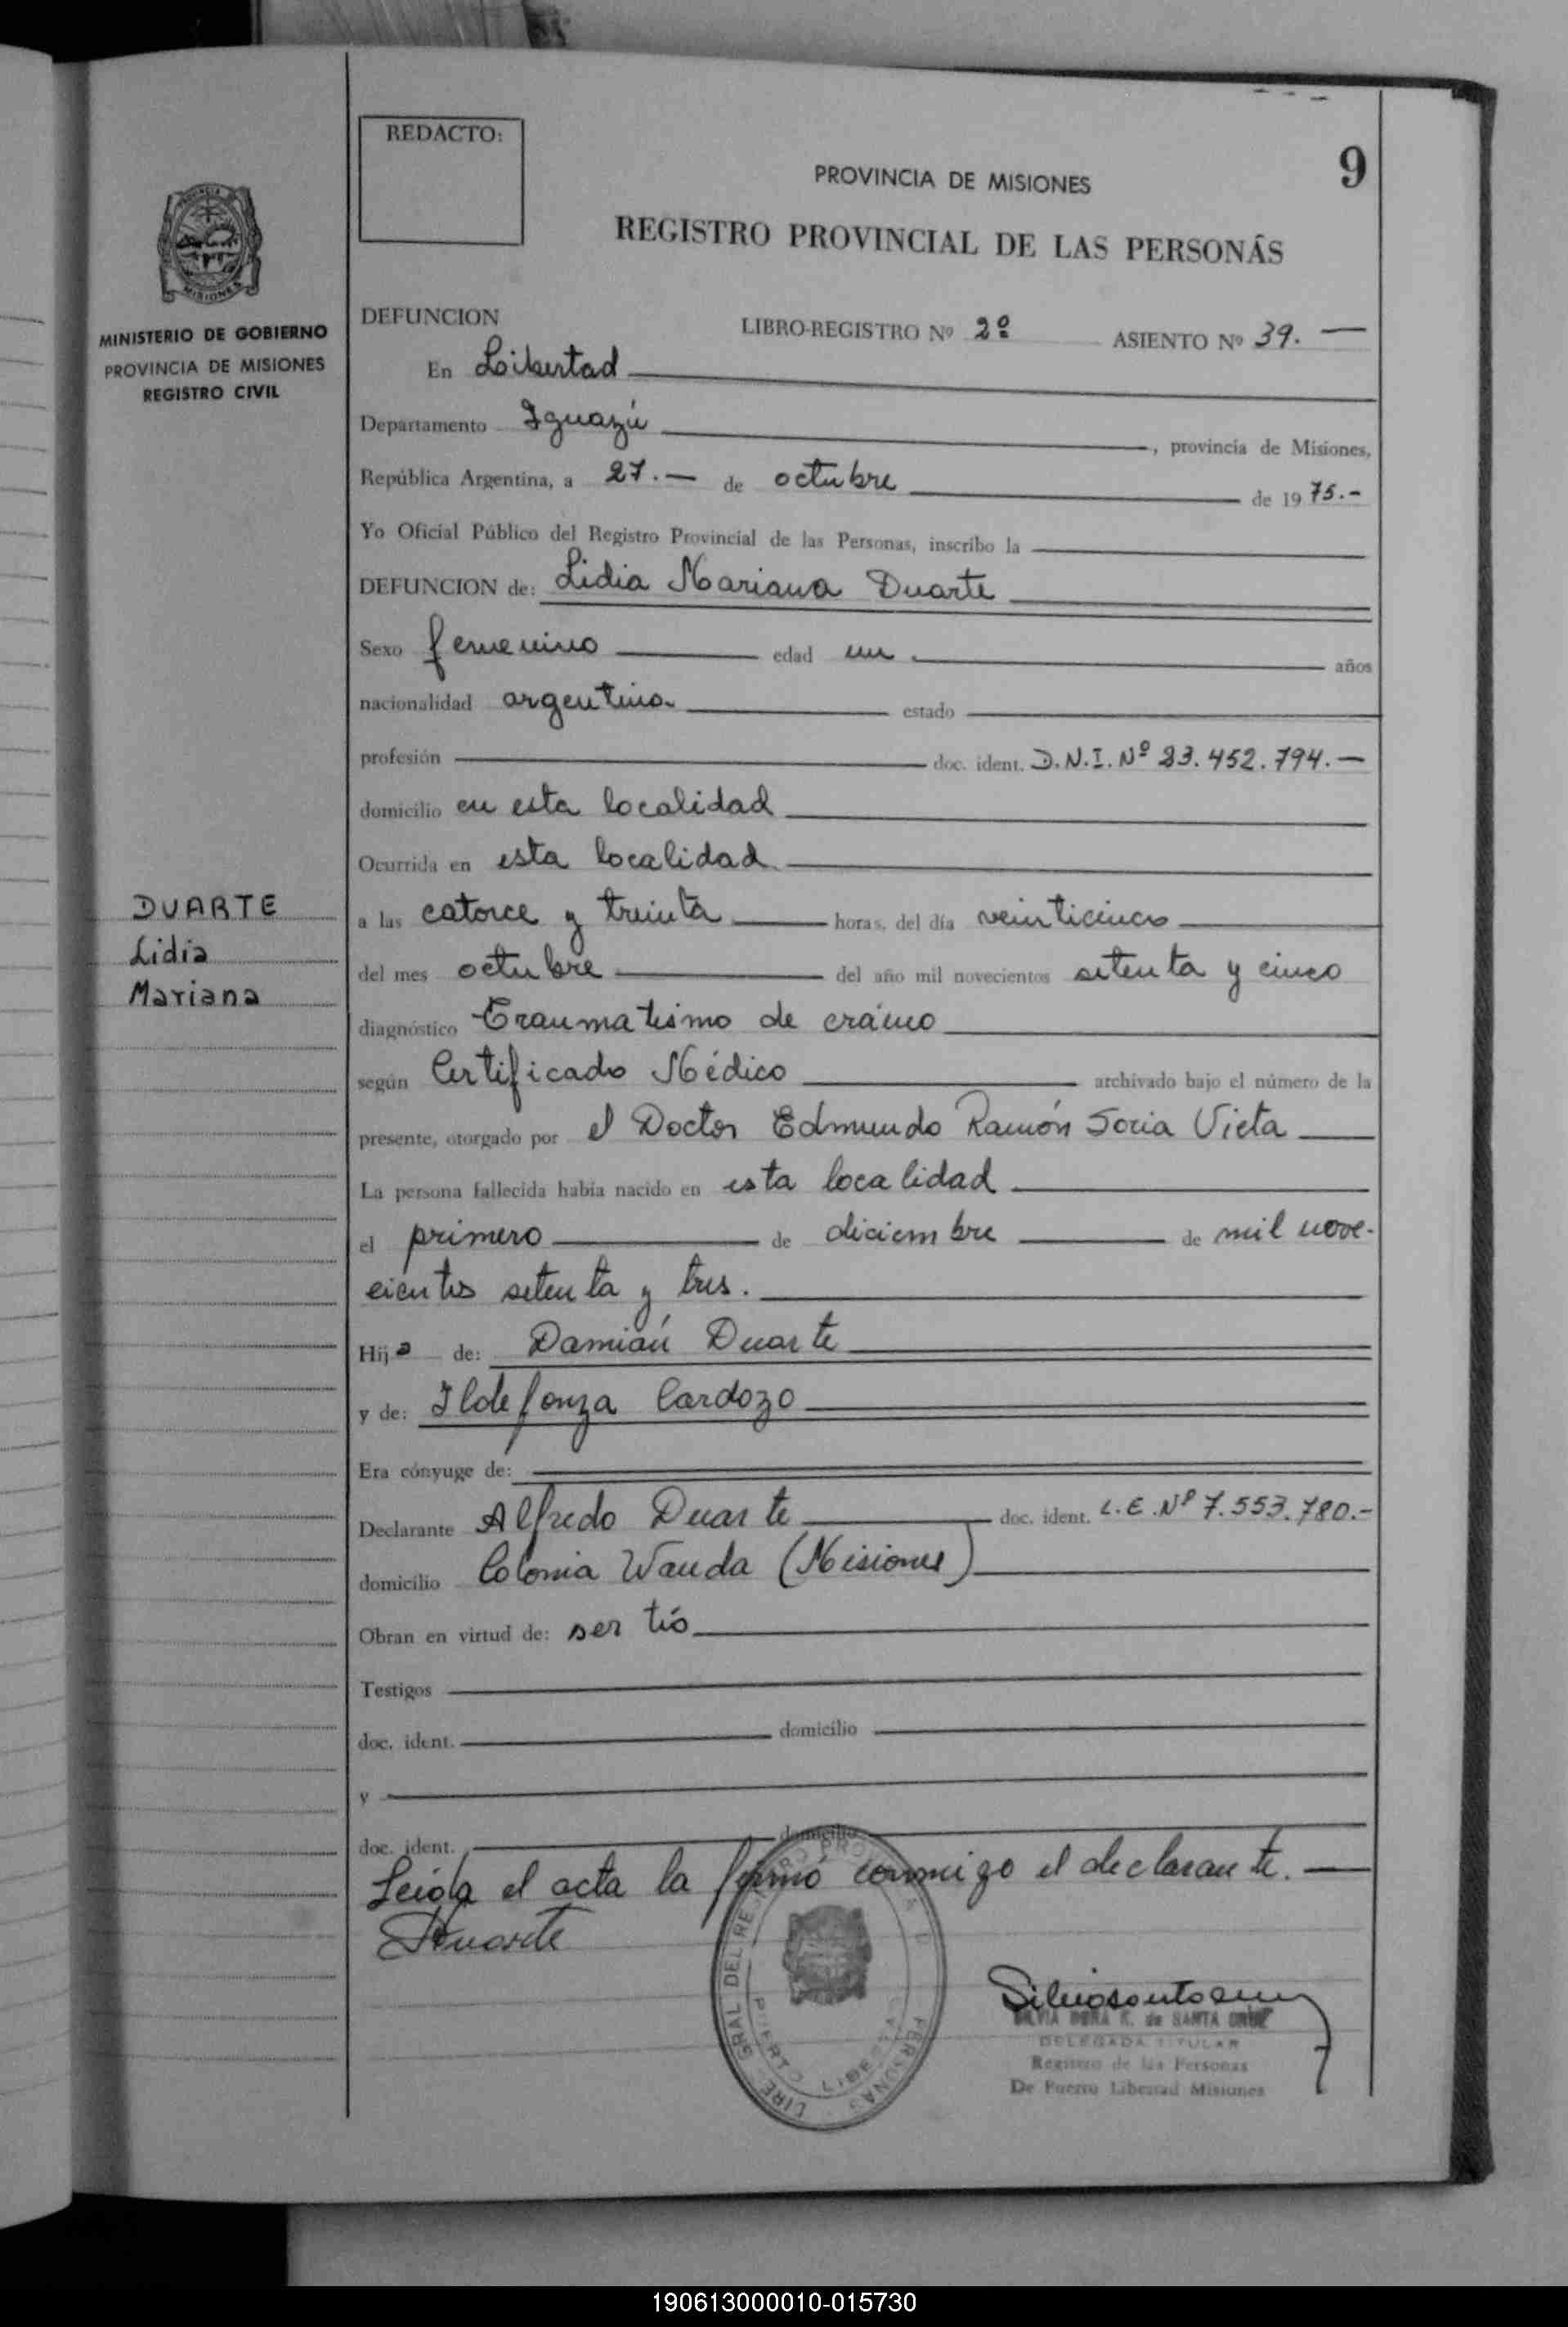 REDACTO:
9
PROVINCIA DE MISIONES
REGISTRO PROVINCIAL DE LAS PERSONÁS
PROVINCIA
MISIONES
MINISTERIO DE GOBIERNO
PROVINCIA DE MISIONES
REGISTRO CIVIL
DEFUNCION LIBRO-REGISTRO Nº 2º ASIENTO Nº 39. —
En Libertad
Departamento Iguazú , provincia de Misiones,
República Argentina, a 27.— de octubre de 1975.-
Yo Oficial Público del Registro Provincial de las Personas, inscribo la
DEFUNCION de: Lidia Mariana Duarte
Sexo femenino edad un años
nacionalidad argentina estado
profesión doc. ident. D.N.I. Nº 23.452.794.—
domicilio en esta localidad
Ocurrida en esta localidad
DUARTE
Lidia
Mariana
a las catorce y treinta horas, del día veinticinco
del mes octubre del año mil novecientos setenta y cinco
diagnóstico Traumatismo de cráneo
según Certificado Médico archivado bajo el número de la
presente, otorgado por el Doctor Edmundo Ramón Soria Vieta
La persona fallecida había nacido en esta localidad
el primero de diciembre de mil nove-
cientos setenta y tres.
Hija de: Damián Duarte
y de: Ildefonza Cardozo
Era cónyuge de:
Declarante Alfredo Duarte doc. ident. L.E. Nº 7.553.780.-
domicilio Colonia Wanda (Misiones)
Obran en virtud de: ser tío
Testigos
doc. ident. domicilio
y
doc. ident. domicilio
Leída el acta la firmó conmigo el declarante.
Duarte
SILVIA DORA K. de SANTA CRUZ
DELEGADA TITULAR
Registro de las Personas
De Puerto Libertad Misiones
190613000010-015730